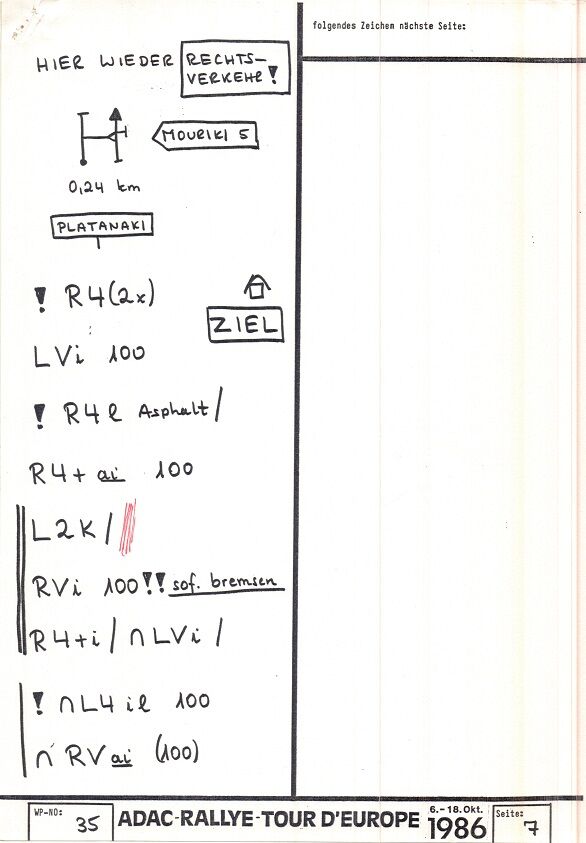 folgendes Zeichen nächste Seite:
HIER WIEDER RECHTS-
VERKEHR!
MOURIKI 5
0,24 km
PLATANAKI
! R4(2x)
ZIEL
LVi 100
! R4l Asphalt/
R4+ ai 100
L2K/
RVi 100!! sof. bremsen
R4+i/ ∩LVi /
! ∩L4 il 100
∩ RVai (100)
WP-NO: 35
ADAC-RALLYE-TOUR D'EUROPE
6.-18.Okt.
1986
Seite: 7